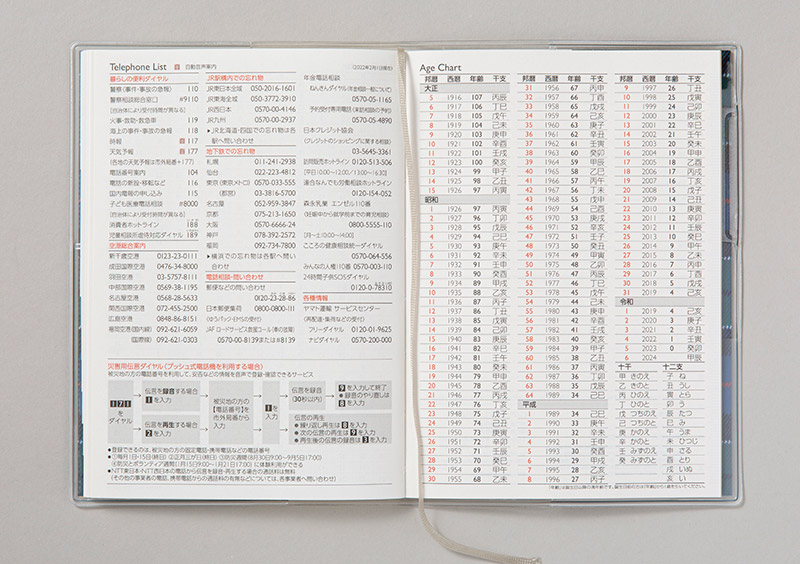 Telephone List 自動音声案内 (2022年2月1日現在)
暮らしの便利ダイヤル
警察(事件・事故の急報) 110
警察相談総合窓口 #9110
(自治体により受付時間が異なる)
火事・救助・救急車 119
海上の事件・事故の急報 118
時報 117
天気予報 177
(各地の天気予報は市外局番+177)
電話番号案内 104
電話の新設・移転など 116
国内電報の申し込み 115
子ども医療電話相談 #8000
(自治体により受付時間が異なる)
消費者ホットライン 188
児童相談所虐待対応ダイヤル 189
空港総合案内
新千歳空港 0123-23-0111
成田国際空港 0476-34-8000
羽田空港 03-5757-8111
中部国際空港 0569-38-1195
名古屋空港 0568-28-5633
関西国際空港 072-455-2500
広島空港 0848-86-8151
福岡空港(国内線) 092-621-6059
(国際線) 092-621-0303
JR駅構内での忘れ物
JR東日本全域 050-2016-1601
JR東海全域 050-3772-3910
JR西日本 0570-00-4146
JR九州 0570-00-2937
▶JR北海道・四国での忘れ物は各駅へ問い合わせ
地下鉄での忘れ物
札幌 011-241-2938
仙台 022-223-4812
東京(東京メトロ) 0570-033-555
(都営) 03-3816-5700
名古屋 052-959-3847
京都 075-213-1650
大阪 0570-6666-24
神戸 078-392-2572
福岡 092-734-7800
▶横浜での忘れ物は各駅へ問い合わせ
電話相談・問い合わせ
郵便などの問い合わせ
0120-23-28-86
日本郵便集荷 0800-0800-111
(ゆうパックの受付)
JAF ロードサービス救援コール(車の故障)
0570-00-8139または#8139
年金電話相談
ねんきんダイヤル(年金相談一般について)
0570-05-1165
予約受付専用電話(来訪相談の予約)
0570-05-4890
日本クレジット協会
(クレジットのショッピングに関する相談)
03-5645-3361
訪問販売ホットライン 0120-513-506
連合なんでも労働相談ホットライン
0120-154-052
森永乳業 エンゼル110番
(妊娠中から就学前までの育児相談)
0800-5555-110
こころの健康相談統一ダイヤル
0570-064-556
みんなの人権110番 0570-003-110
24時間子供SOSダイヤル
0120-0-78310
各種情報
ヤマト運輸 サービスセンター
(再配達・集荷などの受付)
フリーダイヤル 0120-01-9625
ナビダイヤル 0570-200-000
災害用伝言ダイヤル(プッシュ式電話機を利用する場合)
被災地の方の電話番号を利用して、安否などの情報を音声で登録・確認できるサービス
171をダイヤル
伝言を録音する場合 1を入力
伝言を再生する場合 2を入力
被災地の方の【電話番号】を市外局番から入力
1を入力
伝言を録音(30秒以内)
9を入力して終了
●録音のやり直しは8を入力
伝言の再生
●繰り返し再生は8を入力
●次の伝言の再生は9を入力
●再生後の伝言の録音は3を入力
●登録できるのは、被災地の方の固定電話・携帯電話などの電話番号
●①毎月1日・15日(終日) ②正月三が日(終日) ③防災週間(8月30日9:00〜9月5日17:00)
④防災とボランティア週間(1月15日9:00〜1月21日17:00) に体験利用ができる
●NTT東日本・NTT西日本の電話から伝言を録音・再生する場合の通話料は無料
(その他の事業者の電話、携帯電話からの通話料の有無などについては、各事業者へ問い合わせ)
Age Chart
邦暦 西暦 年齢 干支
大正
5 1916 107 丙辰
6 1917 106 丁巳
7 1918 105 戊午
8 1919 104 己未
9 1920 103 庚申
10 1921 102 辛酉
11 1922 101 壬戌
12 1923 100 癸亥
13 1924 99 甲子
14 1925 98 乙丑
15 1926 97 丙寅
昭和
1 1926 97 丙寅
2 1927 96 丁卯
3 1928 95 戊辰
4 1929 94 己巳
5 1930 93 庚午
6 1931 92 辛未
7 1932 91 壬申
8 1933 90 癸酉
9 1934 89 甲戌
10 1935 88 乙亥
11 1936 87 丙子
12 1937 86 丁丑
13 1938 85 戊寅
14 1939 84 己卯
15 1940 83 庚辰
16 1941 82 辛巳
17 1942 81 壬午
18 1943 80 癸未
19 1944 79 甲申
20 1945 78 乙酉
21 1946 77 丙戌
22 1947 76 丁亥
23 1948 75 戊子
24 1949 74 己丑
25 1950 73 庚寅
26 1951 72 辛卯
27 1952 71 壬辰
28 1953 70 癸巳
29 1954 69 甲午
30 1955 68 乙未
邦暦 西暦 年齢 干支
31 1956 67 丙申
32 1957 66 丁酉
33 1958 65 戊戌
34 1959 64 己亥
35 1960 63 庚子
36 1961 62 辛丑
37 1962 61 壬寅
38 1963 60 癸卯
39 1964 59 甲辰
40 1965 58 乙巳
41 1966 57 丙午
42 1967 56 丁未
43 1968 55 戊申
44 1969 54 己酉
45 1970 53 庚戌
46 1971 52 辛亥
47 1972 51 壬子
48 1973 50 癸丑
49 1974 49 甲寅
50 1975 48 乙卯
51 1976 47 丙辰
52 1977 46 丁巳
53 1978 45 戊午
54 1979 44 己未
55 1980 43 庚申
56 1981 42 辛酉
57 1982 41 壬戌
58 1983 40 癸亥
59 1984 39 甲子
60 1985 38 乙丑
61 1986 37 丙寅
62 1987 36 丁卯
63 1988 35 戊辰
64 1989 34 己巳
平成
1 1989 34 己巳
2 1990 33 庚午
3 1991 32 辛未
4 1992 31 壬申
5 1993 30 癸酉
6 1994 29 甲戌
7 1995 28 乙亥
8 1996 27 丙子
邦暦 西暦 年齢 干支
9 1997 26 丁丑
10 1998 25 戊寅
11 1999 24 己卯
12 2000 23 庚辰
13 2001 22 辛巳
14 2002 21 壬午
15 2003 20 癸未
16 2004 19 甲申
17 2005 18 乙酉
18 2006 17 丙戌
19 2007 16 丁亥
20 2008 15 戊子
21 2009 14 己丑
22 2010 13 庚寅
23 2011 12 辛卯
24 2012 11 壬辰
25 2013 10 癸巳
26 2014 9 甲午
27 2015 8 乙未
28 2016 7 丙申
29 2017 6 丁酉
30 2018 5 戊戌
31 2019 4 己亥
令和
1 2019 4 己亥
2 2020 3 庚子
3 2021 2 辛丑
4 2022 1 壬寅
5 2023 0 癸卯
6 2024 甲辰
十干 十二支
甲 きのえ 子 ね
乙 きのと 丑 うし
丙 ひのえ 寅 とら
丁 ひのと 卯 う
戊 つちのえ 辰 たつ
己 つちのと 巳 み
庚 かのえ 午 うま
辛 かのと 未 ひつじ
壬 みずのえ 申 さる
癸 みずのと 酉 とり
戌 いぬ
亥 い